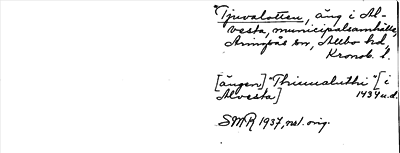 Tjuvalotten, äng i Al-
vesta, municipalsamhälle,
Aringsås sn, Allbo hd,
Kronob. l.
[ängen] "Thiuualuthi" [i
Alvesta] 1434 u.d.
SMR 1937, nel. orig.